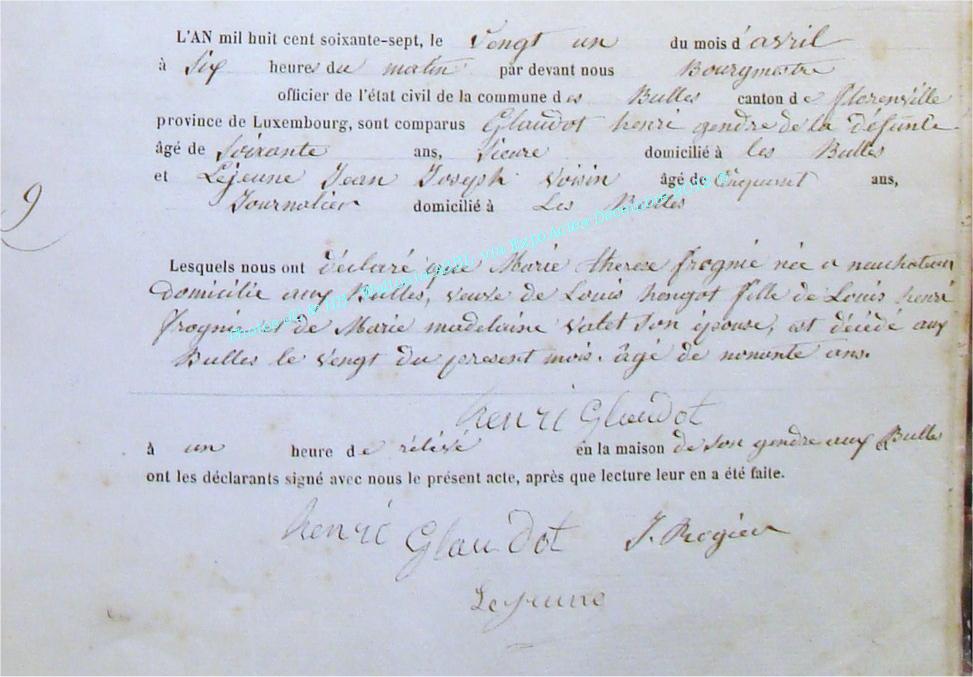 L'AN mil huit cent soixante-sept, le vengt un du mois d'avril
à Six heures du matin par devant nous Bourgmestre
officier de l'état civil de la commune des Bulles canton de florenville
province de Luxembourg, sont comparus Glaudot henri gendre de la défunte
âgé de Soixante ans, domicilié à les Bulles
et Lejeune Jean Joseph voisin âgé de ans,
9
Journalier domicilié à Les Bulles
Lesquels nous ont déclaré que Marie therese frognié née a
domicilié aux Bulles, veuve de Louis fille de Louis henri
frognié et de Marie madelaine vatet Son épouse, est décédé aux
Bulles le vengt du présent mois. âgé de nonante ans.
henri Glaudot
à un heure de en la maison de son gendre aux Bulles et
ont les déclarants signé avec nous le présent acte, après que lecture leur en a été faite.
henri Glaudot J. Rogier
Lejeune